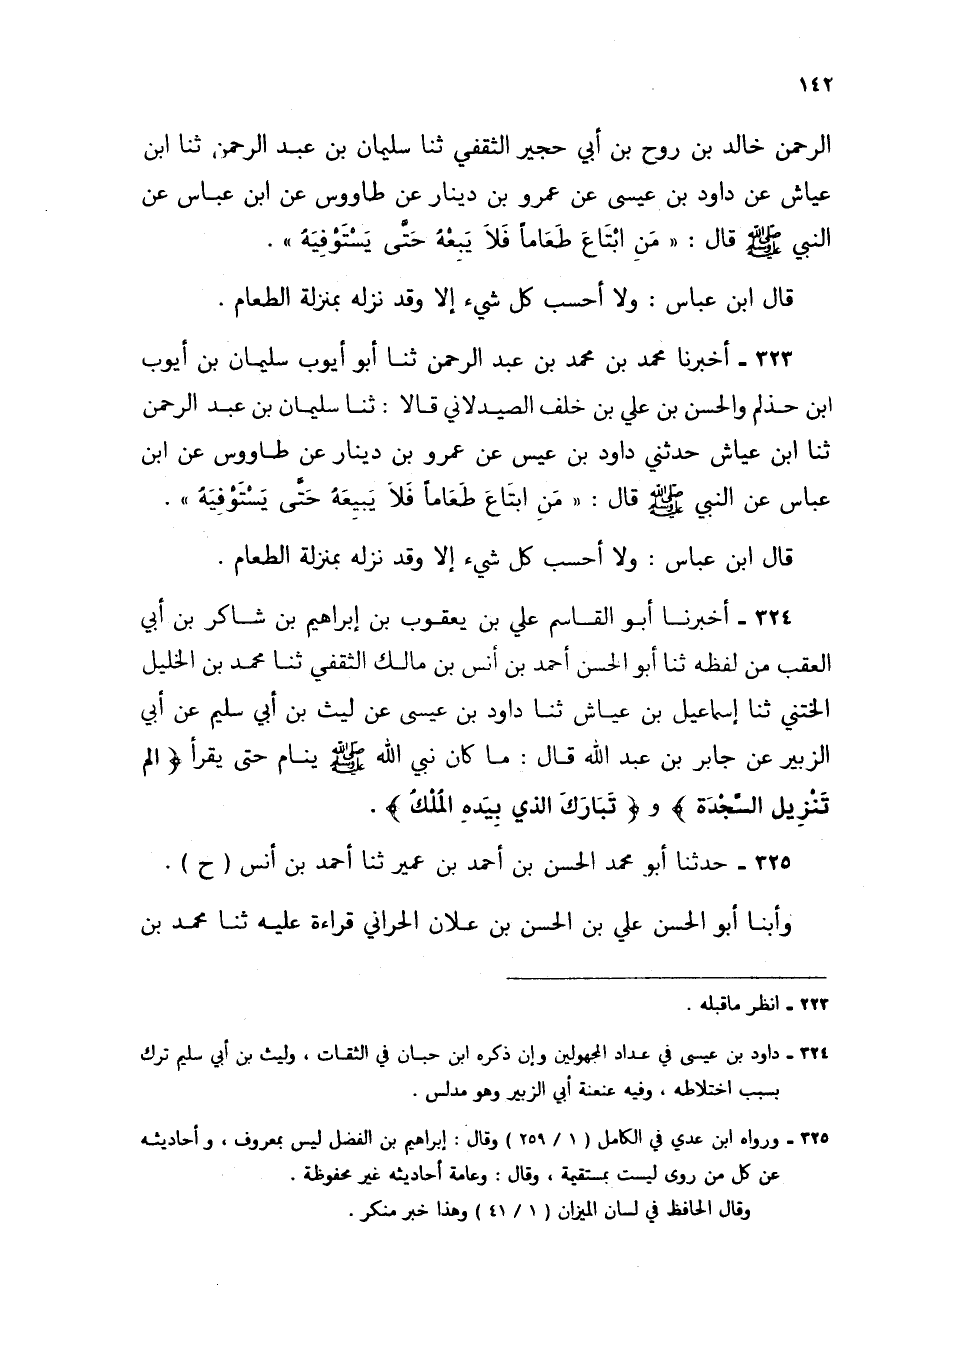 ١٤٢
الرحمن خالد بن روح بن أبي حجير الثقفي ثنا سليمان بن عبد الرحمن ثنا ابن
عياش عن داود بن عيسى عن عمرو بن دينار عن طاووس عن ابن عباس عن
النبي ﷺ قال : « مَنِ ابْتَاعَ طَعَاماً فَلاَ يَبِعْهُ حَتَّى يَسْتَوْفِيَهُ » .
قال ابن عباس : ولا أحسب كل شيء إلا وقد نزله بمنزلة الطعام .
٣٢٣ ـ أخبرنا محمد بن محمد بن عبد الرحمن ثنا أبو أيوب سليمان بن أيوب
ابن حذلم والحسن بن علي بن خلف الصيدلاني قالا : ثنا سليمان بن عبد الرحمن
ثنا ابن عياش حدثني داود بن عيس عن عمرو بن دينار عن طاووس عن ابن
عباس عن النبي ﷺ قال : « مَنِ ابتَاعَ طَعَاماً فَلاَ يَبِيعَهُ حَتَّى يَسْتَوْفِيَهُ » .
قال ابن عباس : ولا أحسب كل شيء إلا وقد نزله بمنزلة الطعام .
٣٢٤ ـ أخبرنا أبو القاسم علي بن يعقوب بن إبراهيم بن شاكر بن أبي
العقب من لفظه ثنا أبو الحسن أحمد بن أنس بن مالك الثقفي ثنا محمد بن الخليل
الختني ثنا إسماعيل بن عياش ثنا داود بن عيسى عن ليث بن أبي سليم عن أبي
الزبير عن جابر بن عبد الله قال : ما كان نبي الله ﷺ ينام حتى يقرأ ﴿ الم
تَنْزِيل السَّجْدَة ﴾ و ﴿ تَبَارَكَ الذي بِيَدِهِ المُلْكُ ﴾ .
٣٢٥ ـ حدثنا أبو محمد الحسن بن أحمد بن عمير ثنا أحمد بن أنس ( ح ) .
وأبنا أبو الحسن علي بن الحسن بن علان الحراني قراءة عليه ثنا محمد بن
٢٢٣ ـ انظر ماقبله .
٣٢٤ ـ داود بن عيسى في عداد المجهولين وإن ذكره ابن حبان في الثقات ، وليث بن أبي سليم ترك
بسبب اختلاطه ، وفيه عنعنة أبي الزبير وهو مدلس .
٣٢٥ ـ ورواه ابن عدي في الكامل ( ١ / ٢٥٩ ) وقال : إبراهيم بن الفضل ليس بمعروف ، و أحاديثه
عن كل من روى ليست بمستقيمة ، وقال : وعامة أحاديثه غير محفوظة .
وقال الحافظ في لسان الميزان ( ١ / ٤١ ) وهذا خبر منكر .